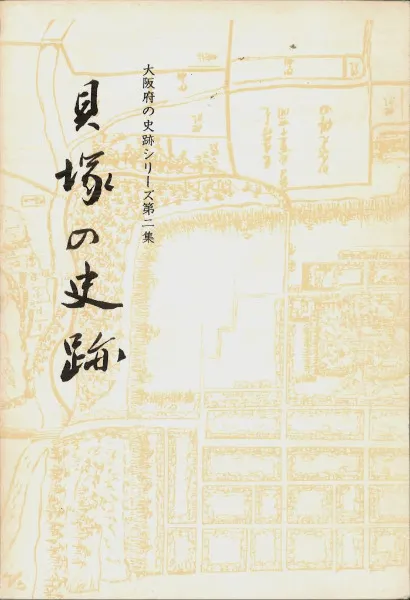 大阪府の史跡シリーズ第二集
貝塚の史跡